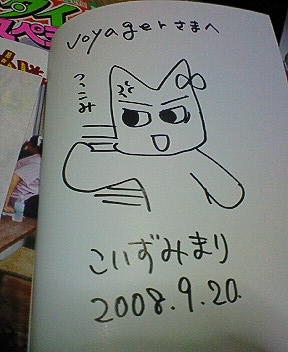 voyagerさまへ
つっこみ
こいずみまり
2008.9.20.